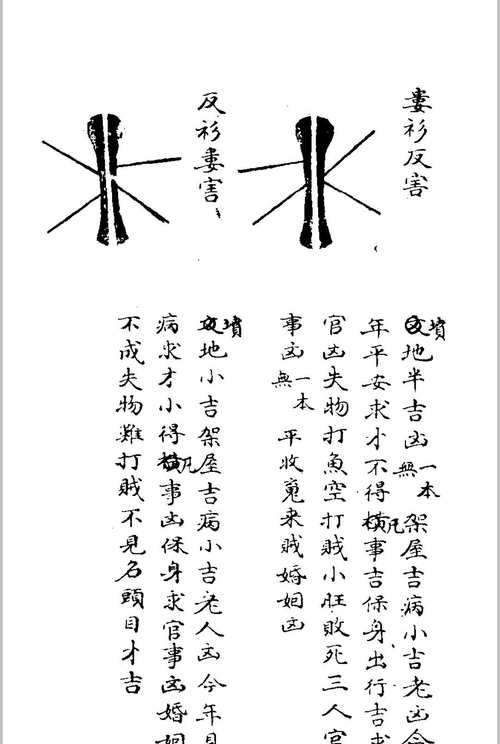 婁衫反害
反衫婁害
墳地半吉凶一本無架屋吉病小吉老凶今
年平安求才不得橫事吉保身出行吉求
官凶失物打魚空打賊小旺敗死三人官
事凶一本無平收嵬来賊婚姻凶
墳地小吉架屋吉病小吉老人凶今年見
病求才小得橫凡事凶保身求官事凶婚姻
不成失物難打賊不見石頭目才吉